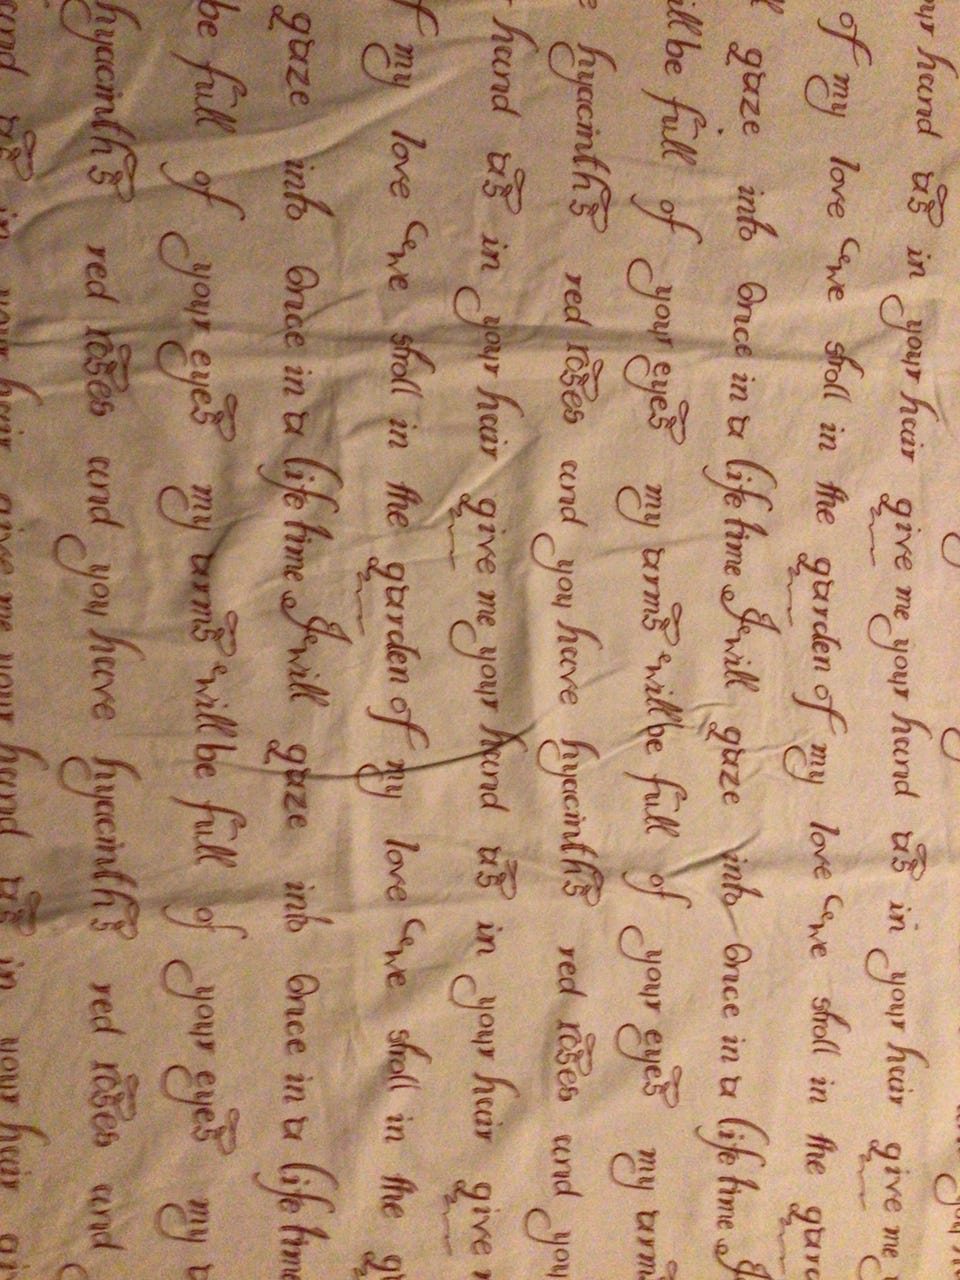 hand as in your hair give me your hand as in your hair give me
of my love we stroll in the garden of my love we stroll in the
gaze into once in a life time I will gaze into once in a life time I
be full of your eyes my arms will be full of your eyes my arm
hyacinths red roses and you have hyacinths red roses and you
hand as in your hair give me your hand as in your hair give
of my love we stroll in the garden of my love we stroll in the
gaze into once in a life time I will gaze into once in a life time
be full of your eyes my arms will be full of your eyes my
hyacinths red roses and you have hyacinths red roses and
as in your hair give me your hand as in your hair